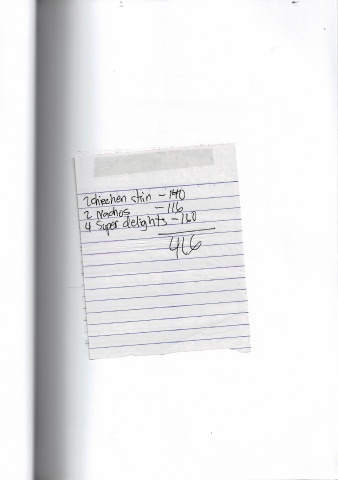 2 chicken skin - 140
2 Nachos - 116
4 Super delights - 160
416